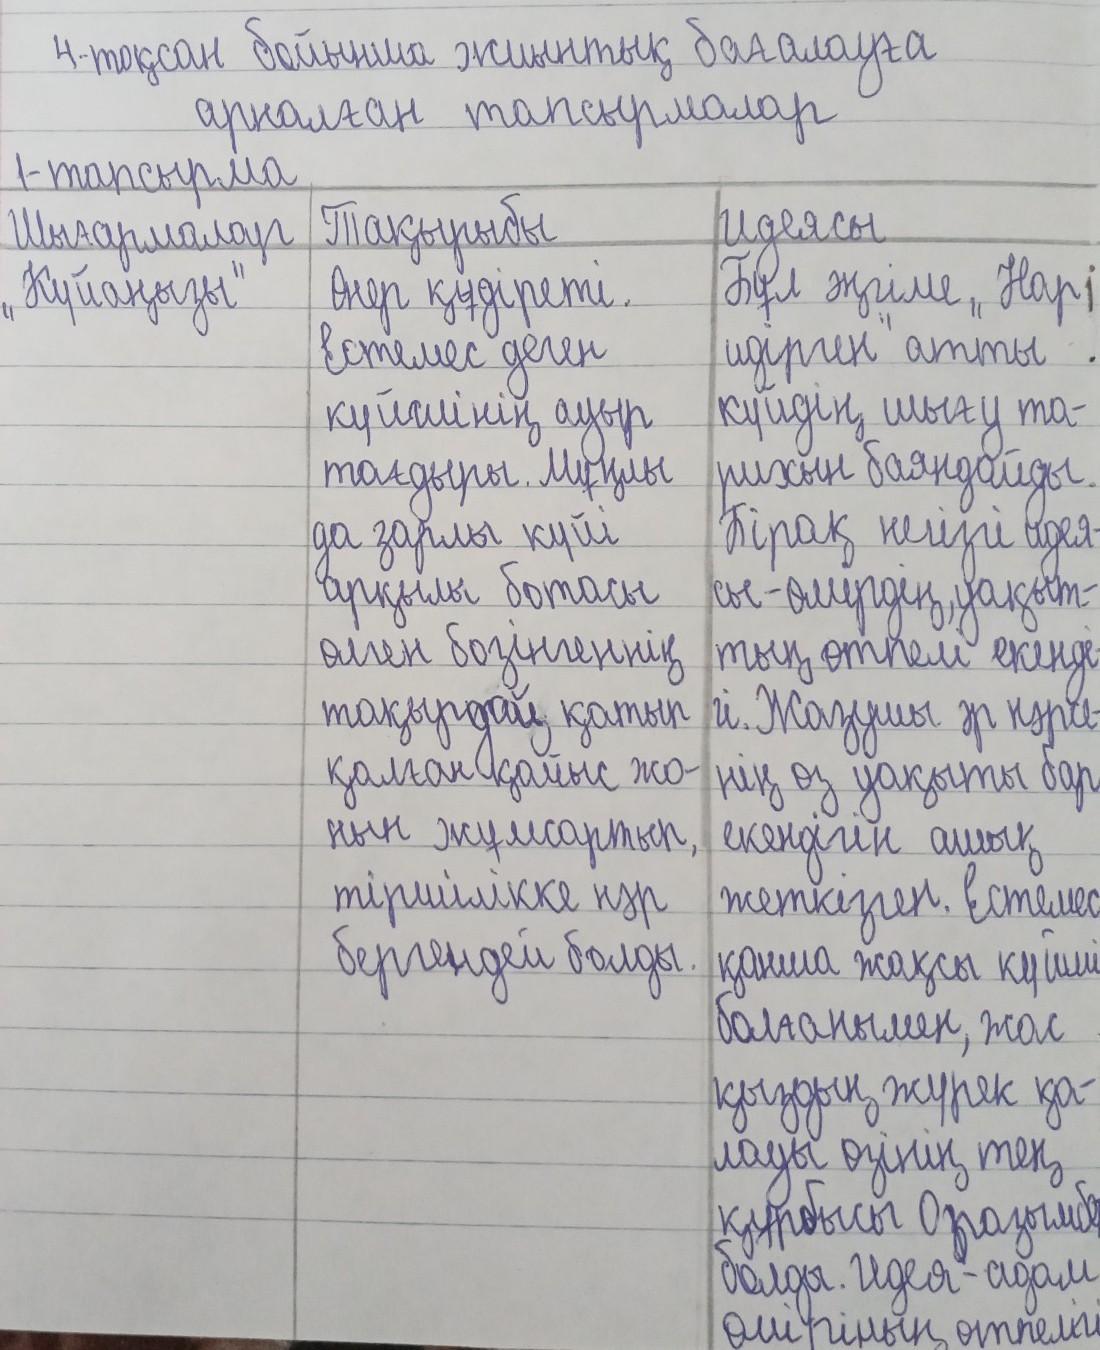 4-тоқсан бойынша жиынтық бағалауға
арналған тапсырмалар
1-тапсырма
Шығармалар
„Күйаңызы"
Тақырыбы
Өнер құдіреті.
Естемес деген
күйшінің ауыр
тағдыры. Мұңлы
да зарлы күйі
арқылы ботасы
өлген бозінгеннің
тақырдай қатып
қалған қайыс жо-
нын жұмсартып,
тіршілікке нәр
бергендей болды.
Идеясы
Бұл әңгіме „Нар
идірген" атты
күйдің шығу та-
рихын баяндайды.
Бірақ негізгі идея-
сы-өмірдің, уақыт-
тың өтпелі екенді-
гі. Жазушы әр нәрсе-
нің өз уақыты бар
екендігін ашық
жеткізген. Естемес
қанша жақсы күйші
болғанымен, жас
қыздың жүрек қа-
лауы өзінің тең
құрбысы Оразымбет
болды. Идея-адам
өмірінің өтпелігі